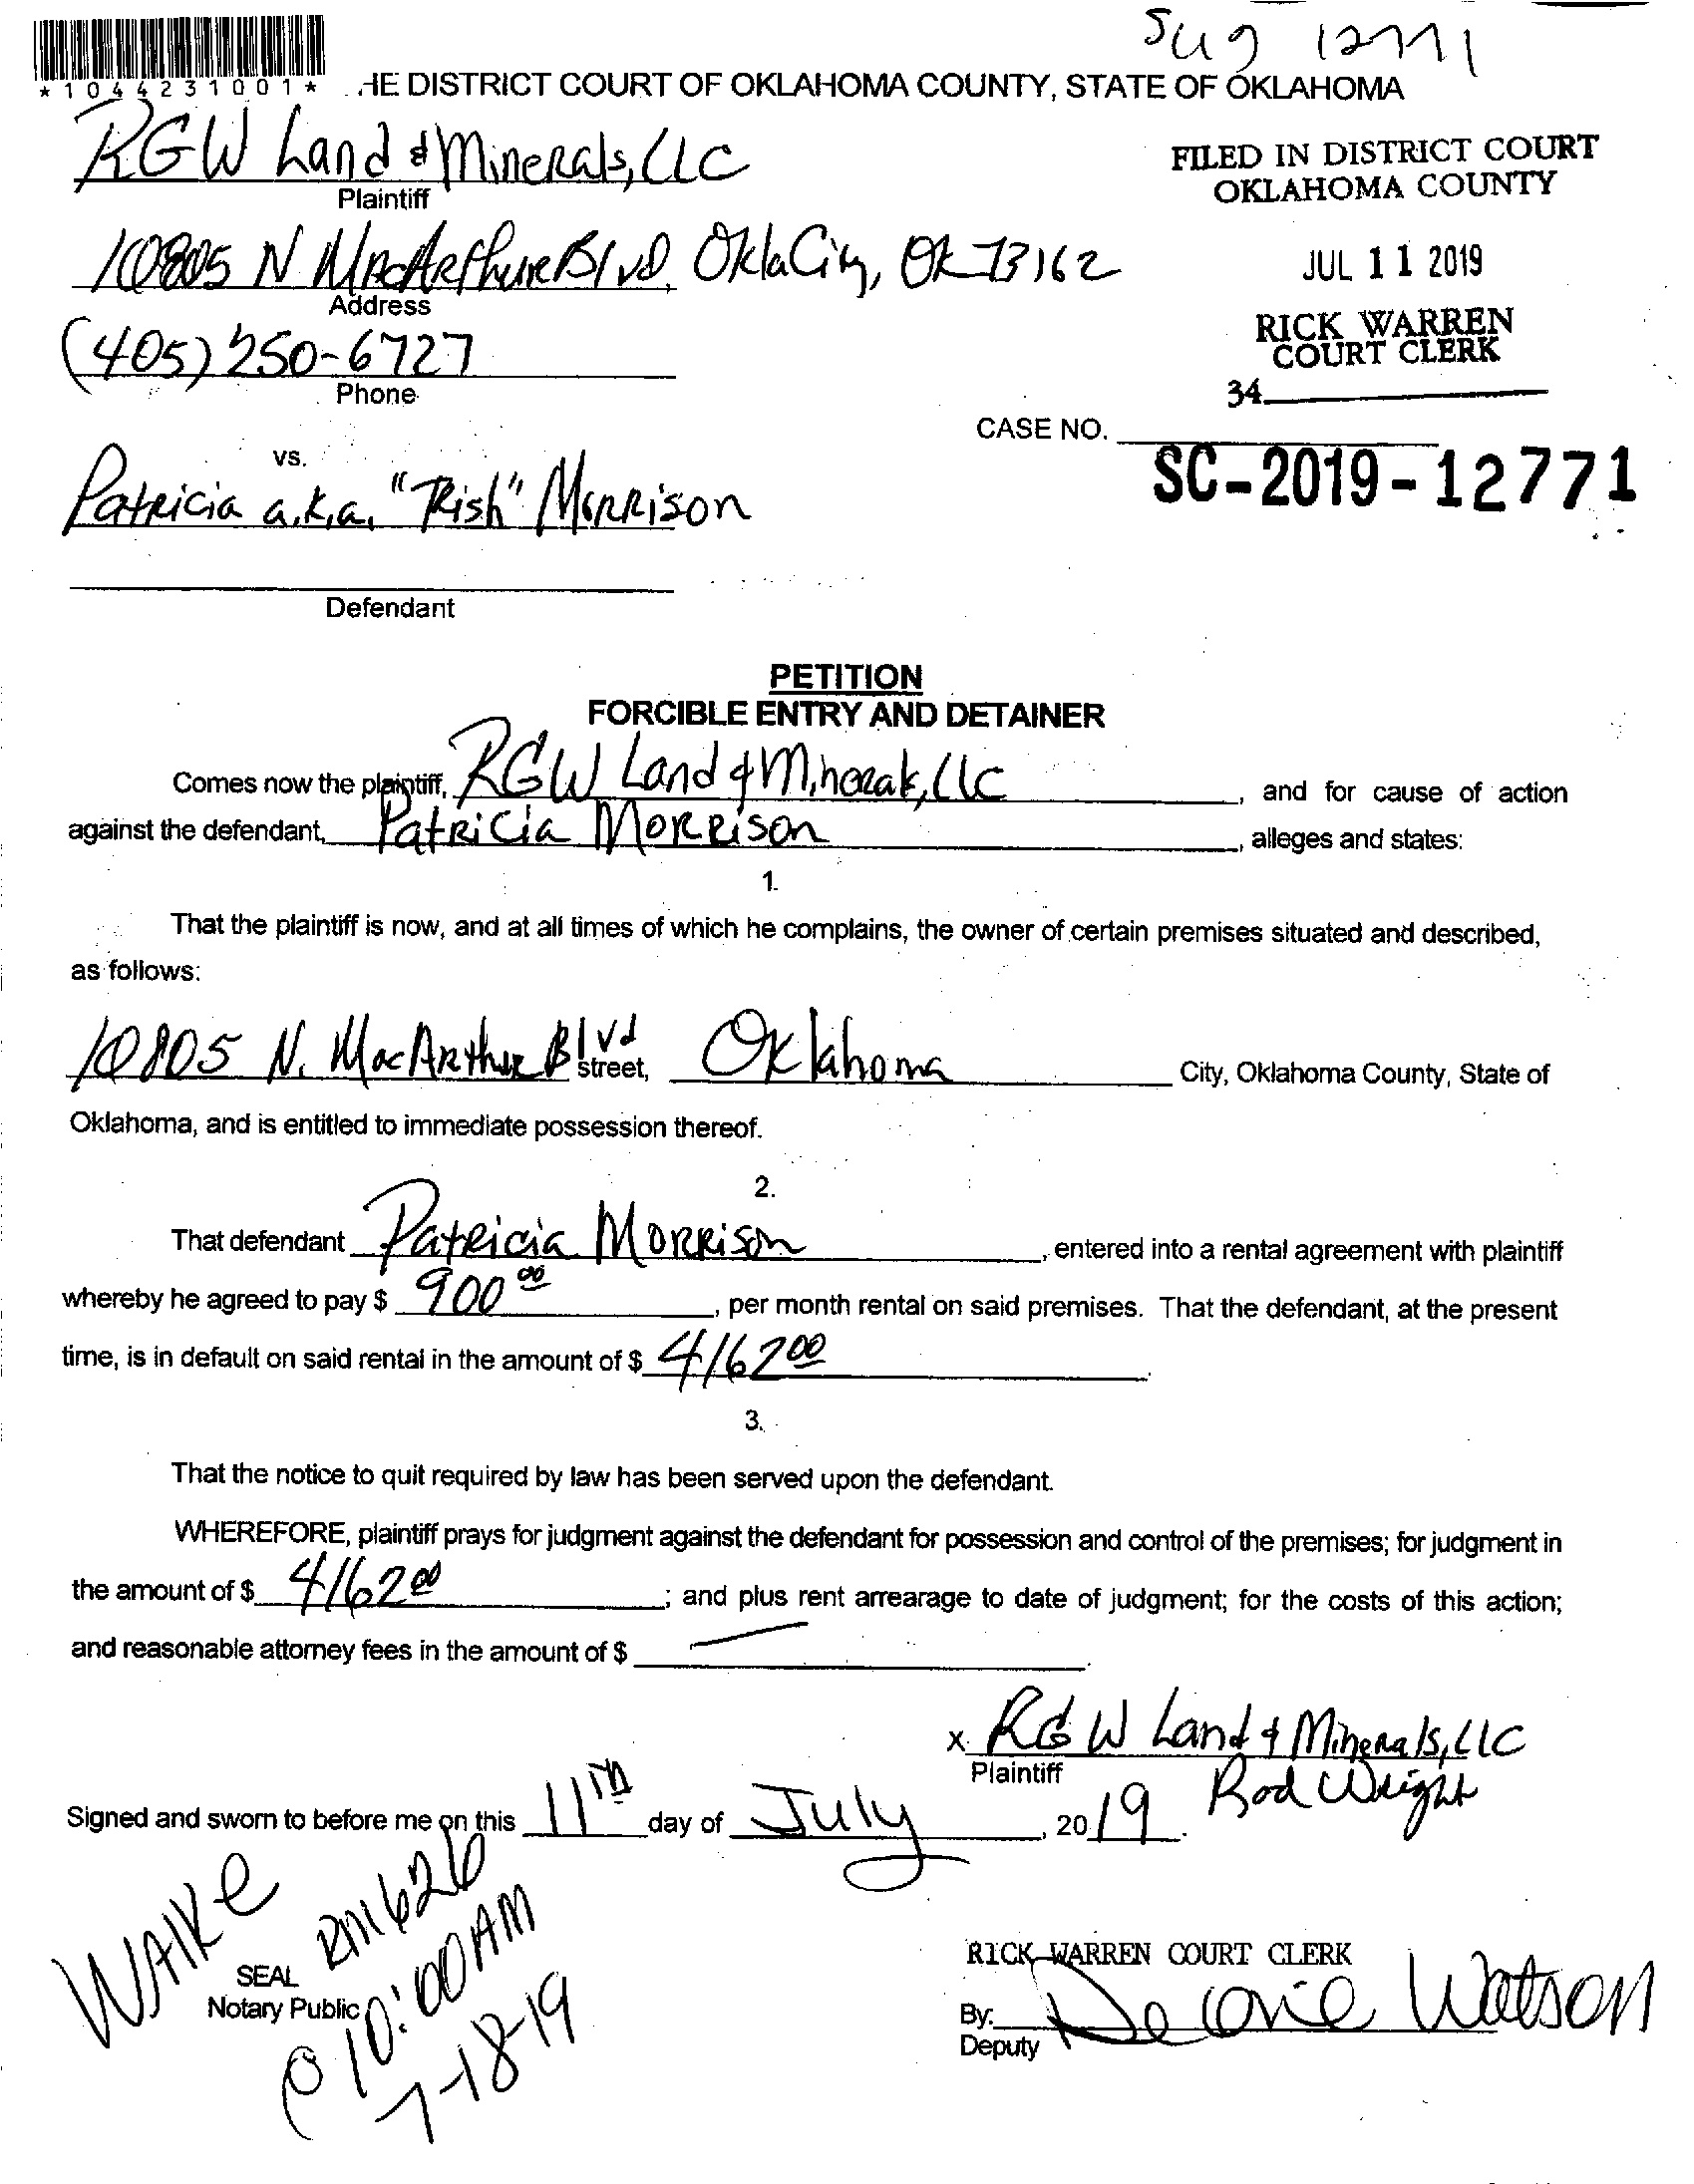 *1044231001*
HE DISTRICT COURT OF OKLAHOMA COUNTY, STATE OF OKLAHOMA
RGW Land & Minerals, LLC
Plaintiff
FILED IN DISTRICT COURT
OKLAHOMA COUNTY
10805 N MacArthur Blvd, Okla City, Ok 73162
Address
JUL 11 2019
(405) 250-6727
Phone
RICK WARREN
COURT CLERK
34
CASE NO.
SC-2019-12771
vs.
Patricia a.k.a. "Trish" Morrison
Defendant
PETITION
FORCIBLE ENTRY AND DETAINER
Comes now the plaintiff, RGW Land & Minerals, LLC, and for cause of action
against the defendant, Patricia Morrison, alleges and states:
1.
That the plaintiff is now, and at all times of which he complains, the owner of certain premises situated and described,
as follows:
10805 N. MacArthur Blvd street, Oklahoma City, Oklahoma County, State of
Oklahoma, and is entitled to immediate possession thereof.
2.
That defendant Patricia Morrison, entered into a rental agreement with plaintiff
whereby he agreed to pay $ 900 00, per month rental on said premises. That the defendant, at the present
time, is in default on said rental in the amount of $ 4162 00.
3.
That the notice to quit required by law has been served upon the defendant.
WHEREFORE, plaintiff prays for judgment against the defendant for possession and control of the premises; for judgment in
the amount of $ 4162 00; and plus rent arrearage to date of judgment; for the costs of this action;
and reasonable attorney fees in the amount of $ —.
x RGW Land & Minerals, LLC
Plaintiff
Rod Wright
Signed and sworn to before me on this 11th day of July, 2019.
WAIKE
RM 626
@ 10:00 AM
7-18-19
SEAL
Notary Public
RICK WARREN COURT CLERK
By: Watson
Deputy